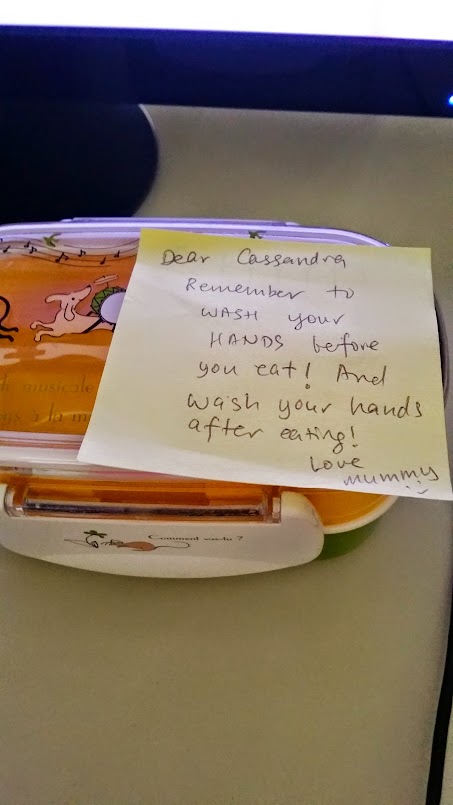 Dear Cassandra
Remember to
WASH your
HANDS before
you eat! And
wash your hands
after eating!
Love
mummy
musicale
à la
Comment vas-tu ?